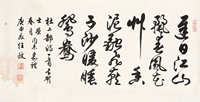 遲日江山
麗春風花
艸香
泥融飛燕
子沙暖睡
鴛鴦
杜工部詩一首
任政